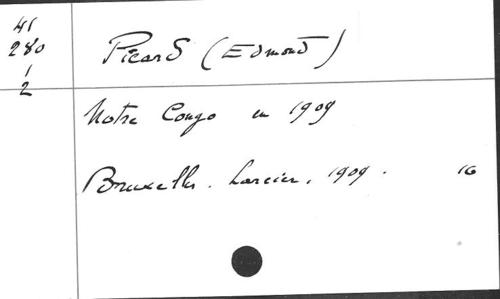 41
280
1
2
Picard (Edmond)
Notre Congo en 1909
Bruxelles. Larcier, 1909. 16